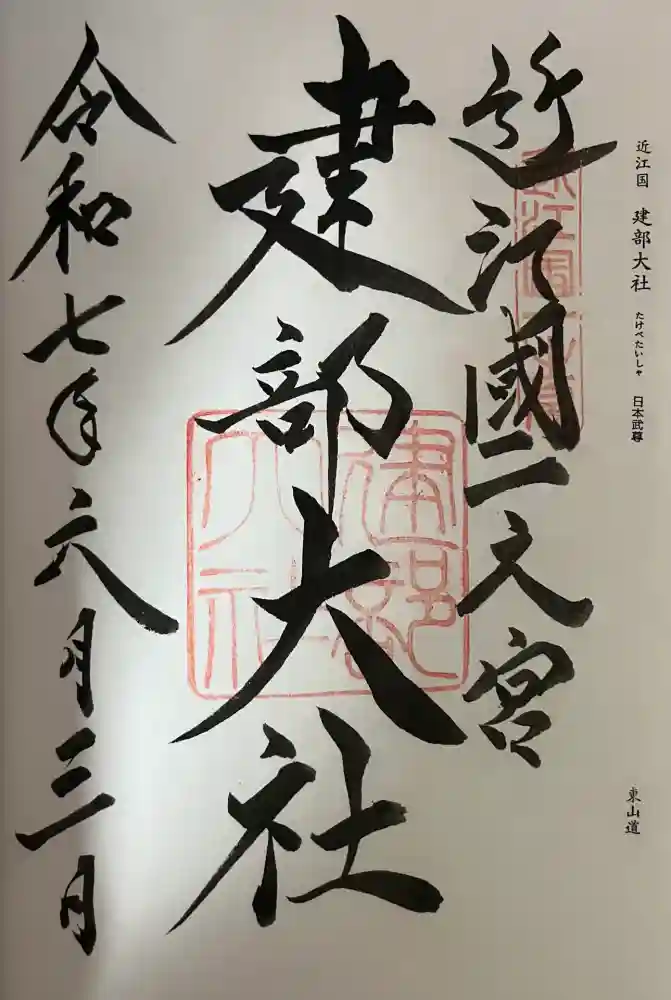 近江国 建部大社 たけべたいしゃ 日本武尊
東山道
近江國一之宮
建部大社
令和七年六月三日
建部大社